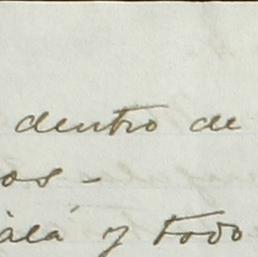 dentro de
os-
alá y todo